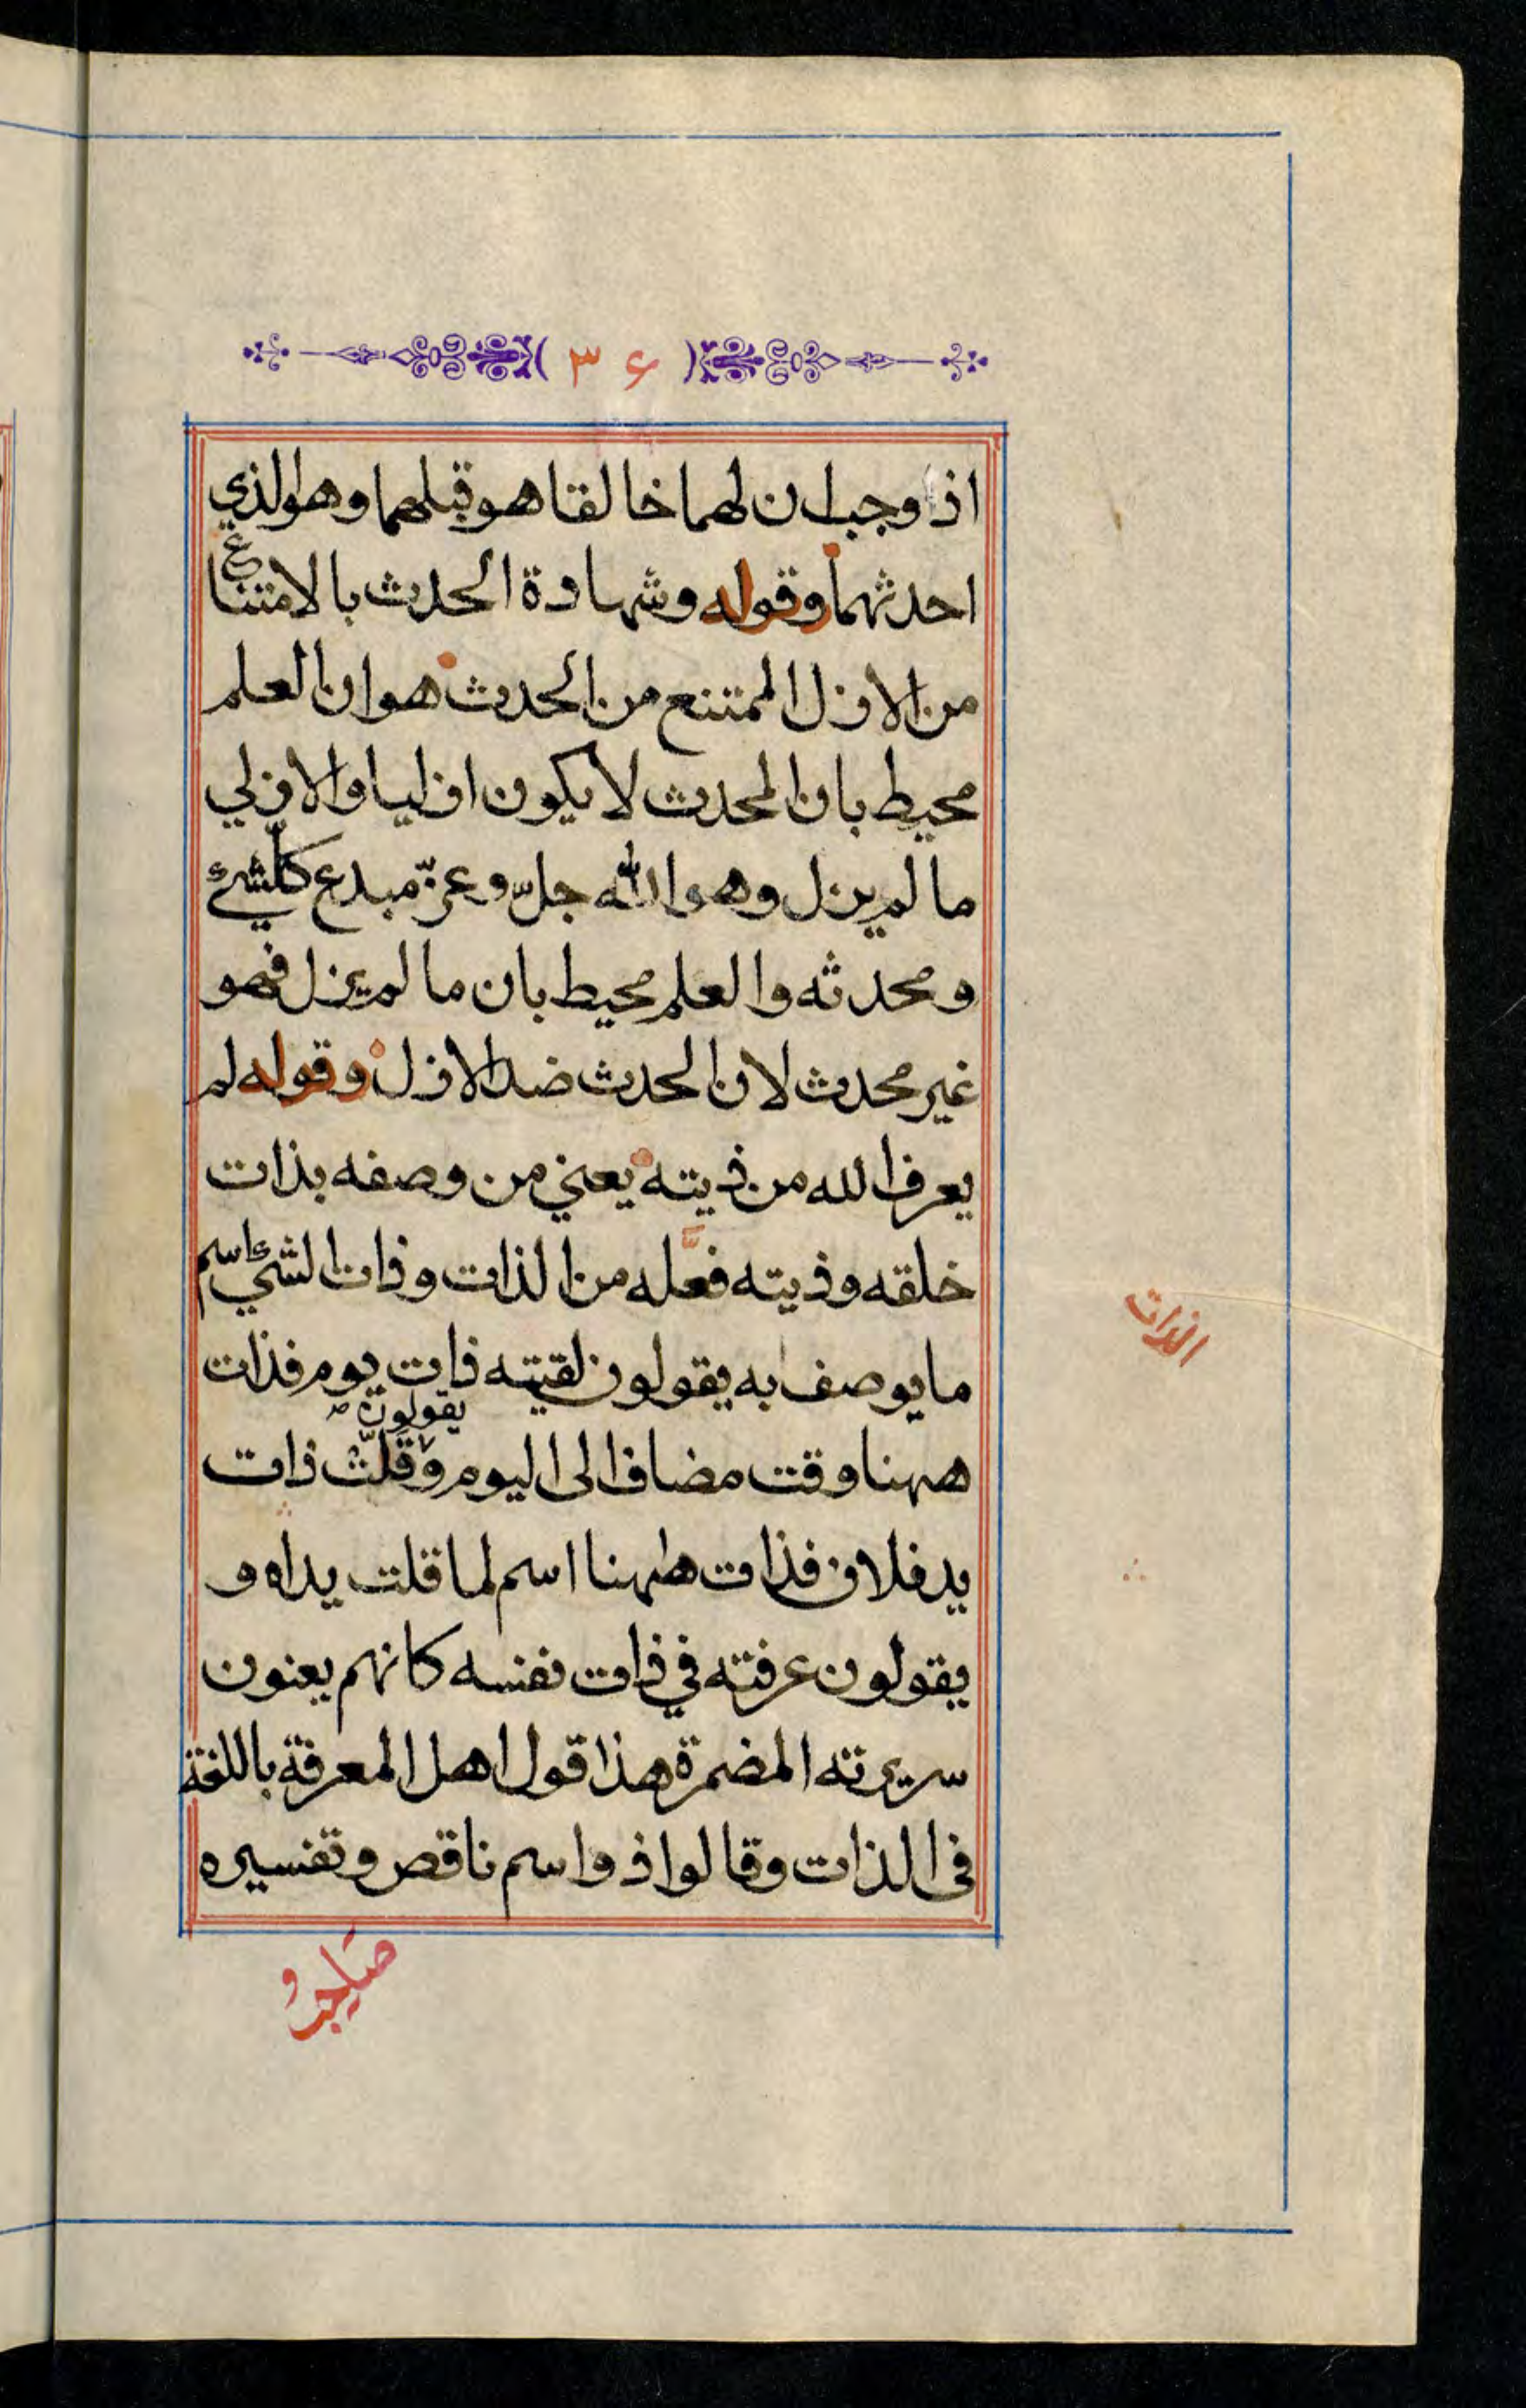 ( ٣٤ )
اذا وجب ان لهما خالقا هو قبلهما وهو الذي
احدثهما وقوله وشهادة الحدث بالامتناع
من الازل الممتنع من الحدث هو ان العلم
محيط بان المحدث لا يكون ازليا والازلي
ما لم يزل وهو الله جلّ وعزّ مبدع كلّشيء
ومحدثه والعلم محيط بان ما لم يزل فهو
غير محدث لان الحدث ضد الازل وقوله لم
يعرف الله من ذيته يعني من وصفه بذات
خلقه وذيته فعّله من الذات وذات الشيء اسم
ما يوصف به يقولون لقيته ذات يوم فذات
يقولون صـ
ههنا وقت مضاف الى اليوم وقلّت ذات
يد فلان فذات ههنا اسم لما قلت يداه و
يقولون عرفته في ذات نفسه كانهم يعنون
سريرته المضمرة هذا قول اهل المعرفة باللغة
في الذات وقالوا ذو اسم ناقص وتفسيره
الذات
صاحب